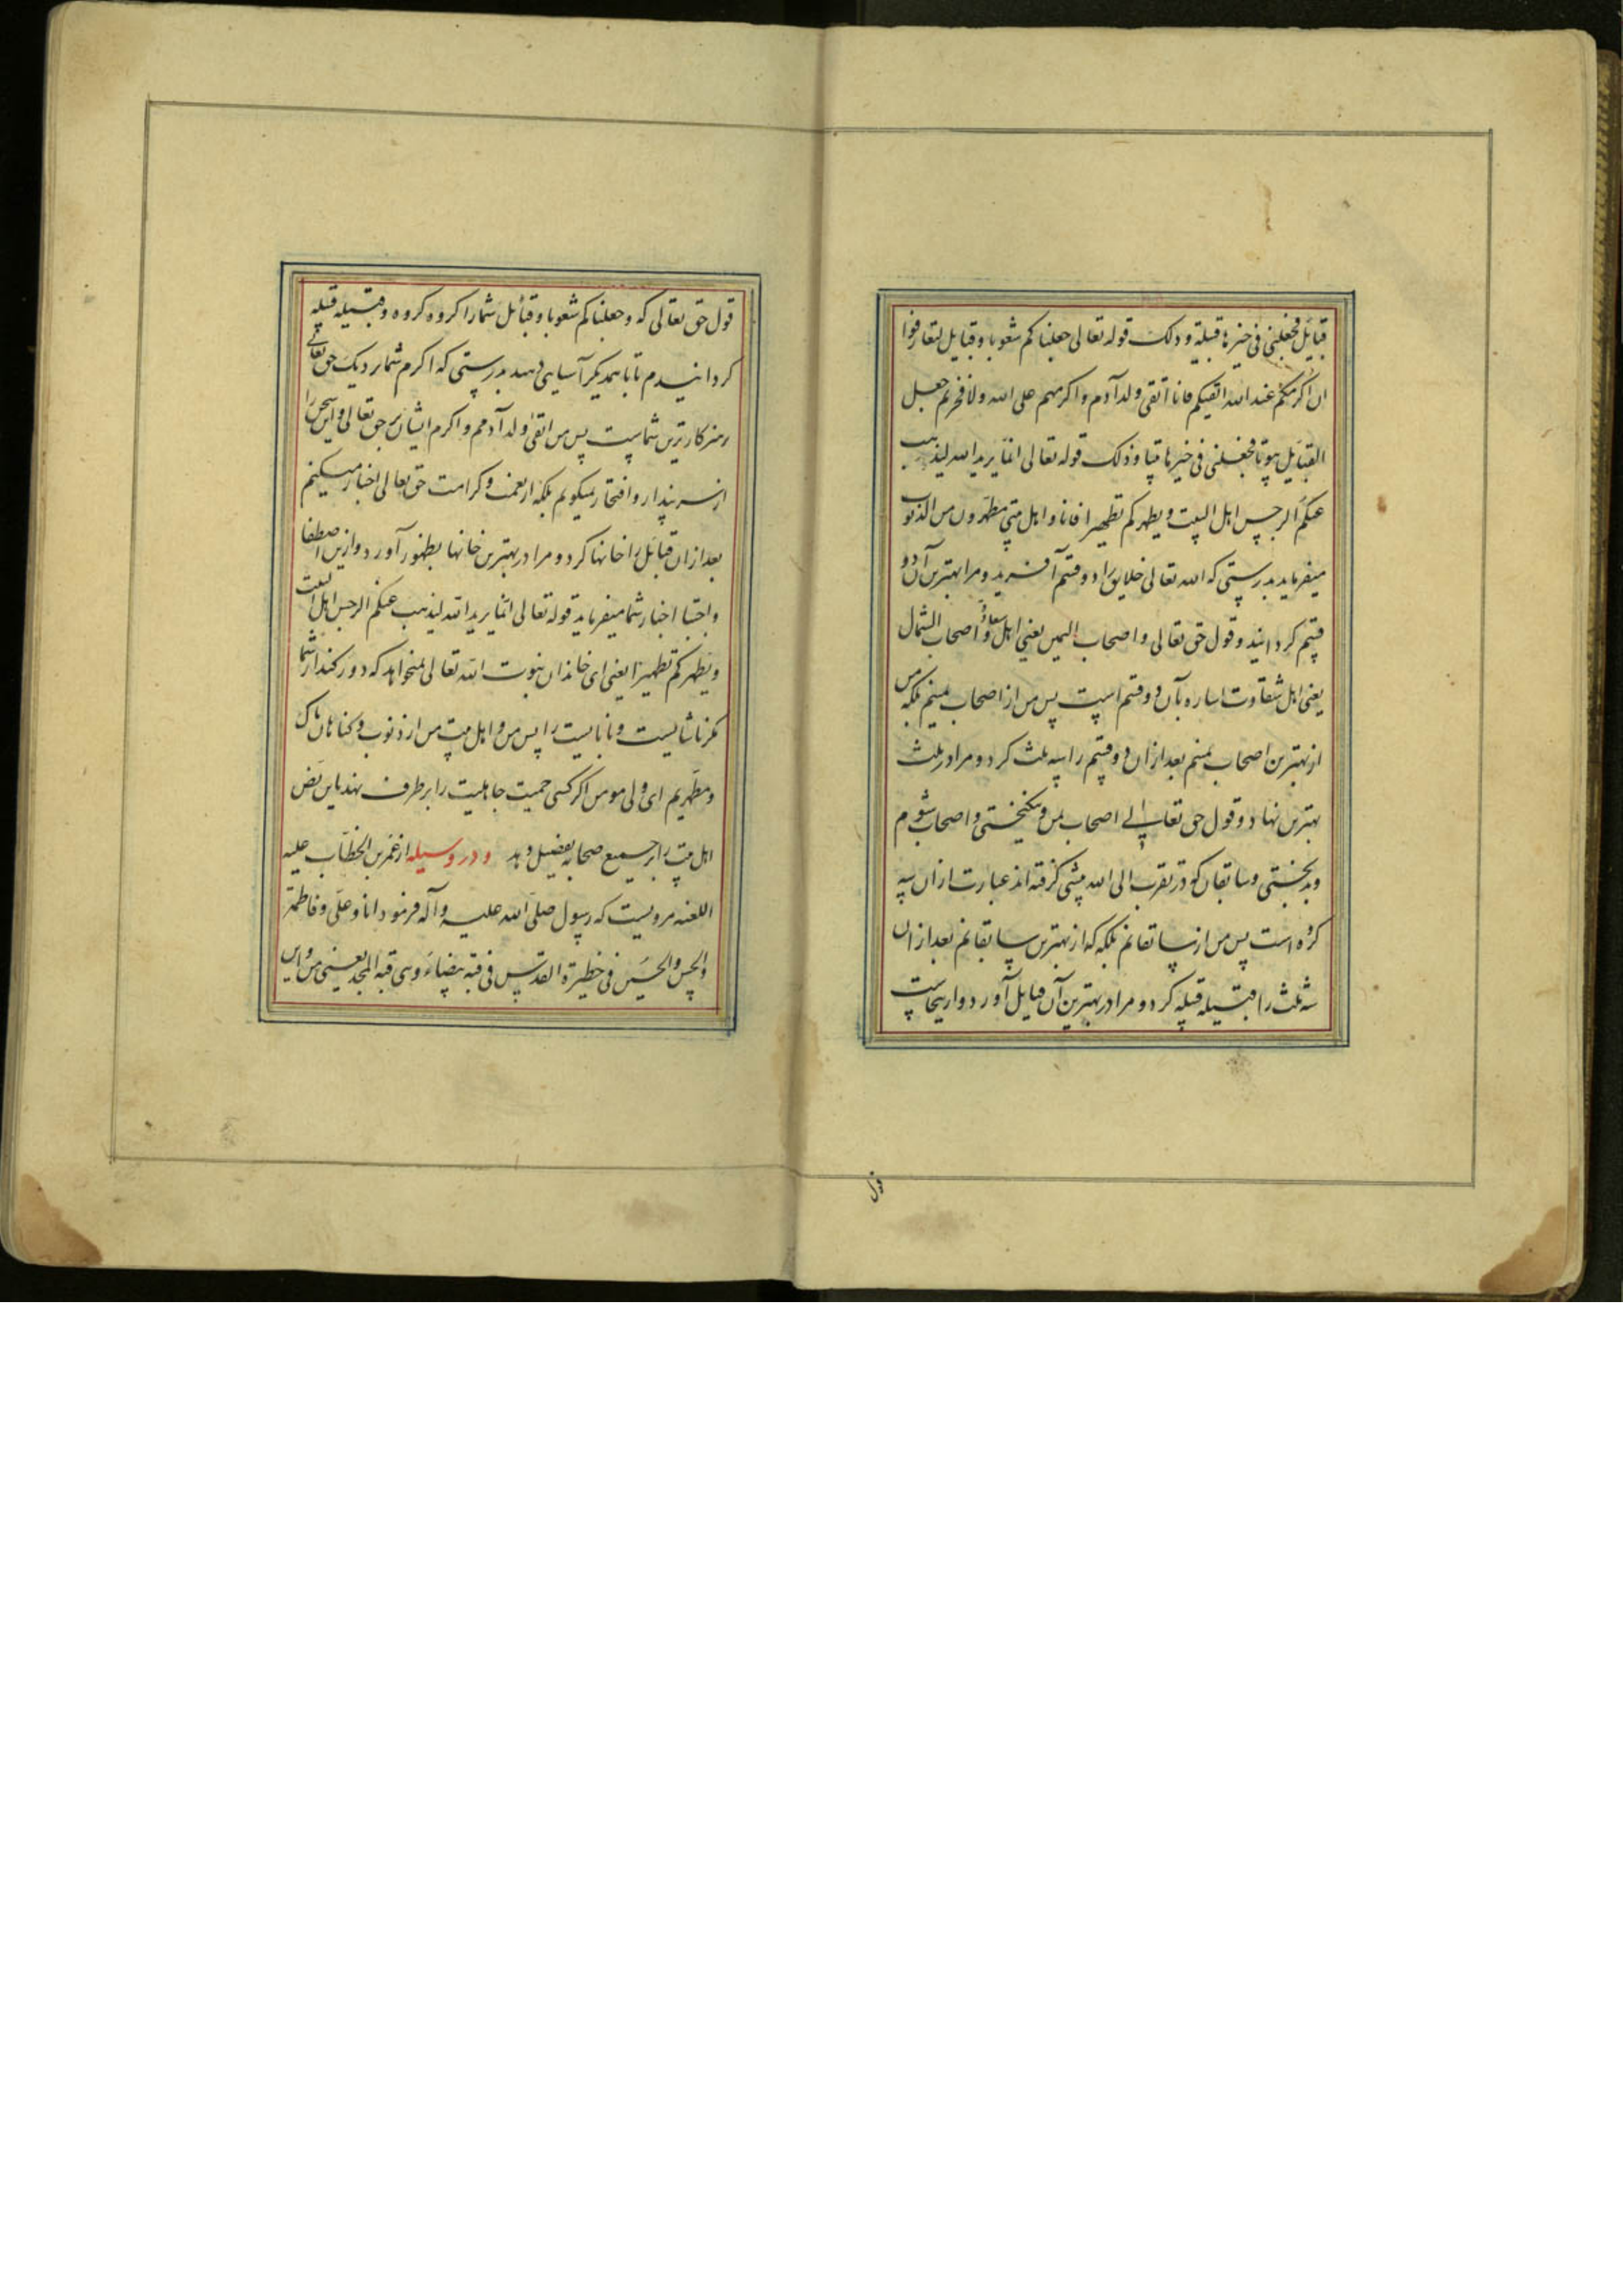 قبائل فجعلنی فی خیرها قبیلة و ذلک قوله تعالی جعلناکم شعوبا و قبایل لتعارفوا
ان اکرمکم عند الله اتقیکم فانا اتقی ولد آدم و اکرمهم علی الله ولا فخر ثم جعل
القبایل بیوتا فجعلنی فی خیرها بیتا و ذلک قوله تعالی انما یرید الله لیذهب
عنکم الرجس اهل البیت و یطهرکم تطهیرا فانا و اهل بیتی مطهرون من الذنوب
میفرماید بدرستی که الله تعالی خلایق را دو قسم آفرید و مرا بهترین آن دو
قسم کردانید و قول حق تعالی و اصحاب الیمین یعنی اهل سعادة و اصحاب الشمال
یعنی اهل شقاوت اساره بآن دو قسم است پس من از اصحاب یمینم بلکه من
از بهترین اصحاب یمینم بعد از ان دو قسم را سه ثلث کرد و مرا در ثلث
بهترین نهاد و قول حق تعالی اصحاب یمن و نیکبختی و اصحاب شوم
و بدبختی و سابقان که در تقرب الی الله پیشی کرفته اند عبارت از ان سه
کروه است پس من از سابقانم بلکه که از بهترین سابقانم بعد از ان
سه ثلث را قبیله قبیله کرد و مرا در بهترین آن قبایل آورد و از ینجاست
قول
قول حق تعالی که و جعلناکم شعوبا و قبائل شما را کروه کروه و قبیله قبیله
کردانیدم تا با همدیکر آسایی دهید بدرستی که اکرم شما نزدیک حق تعالی
پرهیزکارترین شماست پس من اتقی ولد آدمم و اکرم ایشان بر حق تعالی و این سخن را
از سر پندار و افتخار نمیکویم بلکه از نعمت و کرامت حق تعالی اخبار میکنم
بعد از ان قبائل را خانها کرد و مرا در بهترین خانها بظهور آورد و از ین اصطفا
و اجتبا اخبار شما میفرماید قوله تعالی انما یرید الله لیذهب عنکم الرجس اهل البیت
و یطهرکم تطهیرا یعنی ای خاندان نبوت الله تعالی میخواهد که دور کند از شما
مکر ناشایست و نابایست را پس من و اهل بیت من از ذنوب و کناهان پاک
و مطهریم ای ولی مومن اکر کسی حمیت جاهلیت را بر طرف نهد باین نص
اهل بیت را بر جمیع صحابه تفضیل دهد و در وسیله از عمر بن الخطاب علیه
اللعنه مرویست که رسول صلی الله علیه و آله فرمود انا و علی و فاطمة
والحسن والحسین فی حظیرة القدس فی قبة بیضاء و هی قبة المجد یعنی من و این